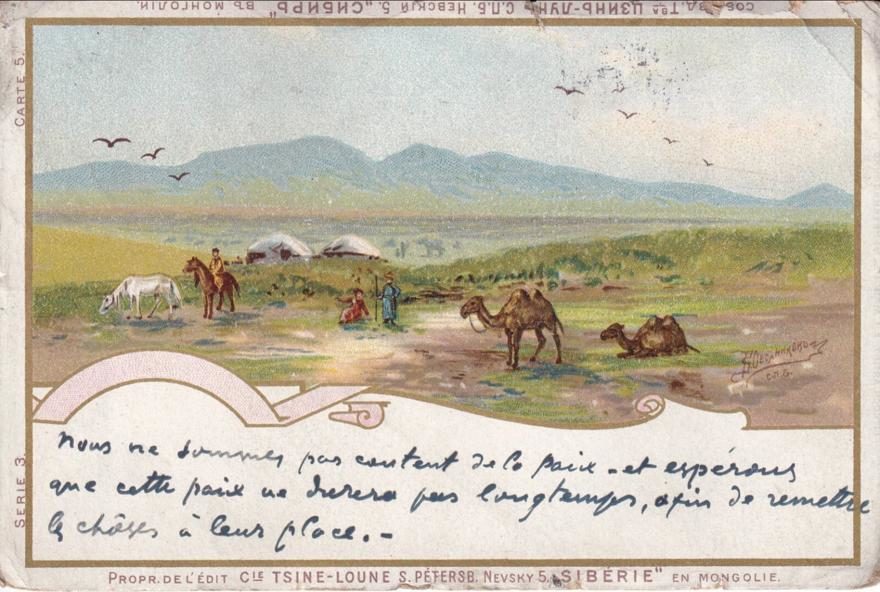 СОБ. ИЗД. Т-ВА ЦЗИНЬ-ЛУНЪ С.П.Б. НЕВСКІЙ 5. „СИБИРЬ" ВЪ МОНГОЛІИ.
CARTE 5.
С.П.Б.
SERIE 3.
Nous ne sommes pas content de la paix - et espérons
que cette paix ne durera pas longtemps, afin de remettre
les chôses à leur place. -
PROPR. DE L'ÉDIT CIE TSINE-LOUNE S. PÉTERSB. NEVSKY 5. „SIBÉRIE" EN MONGOLIE.